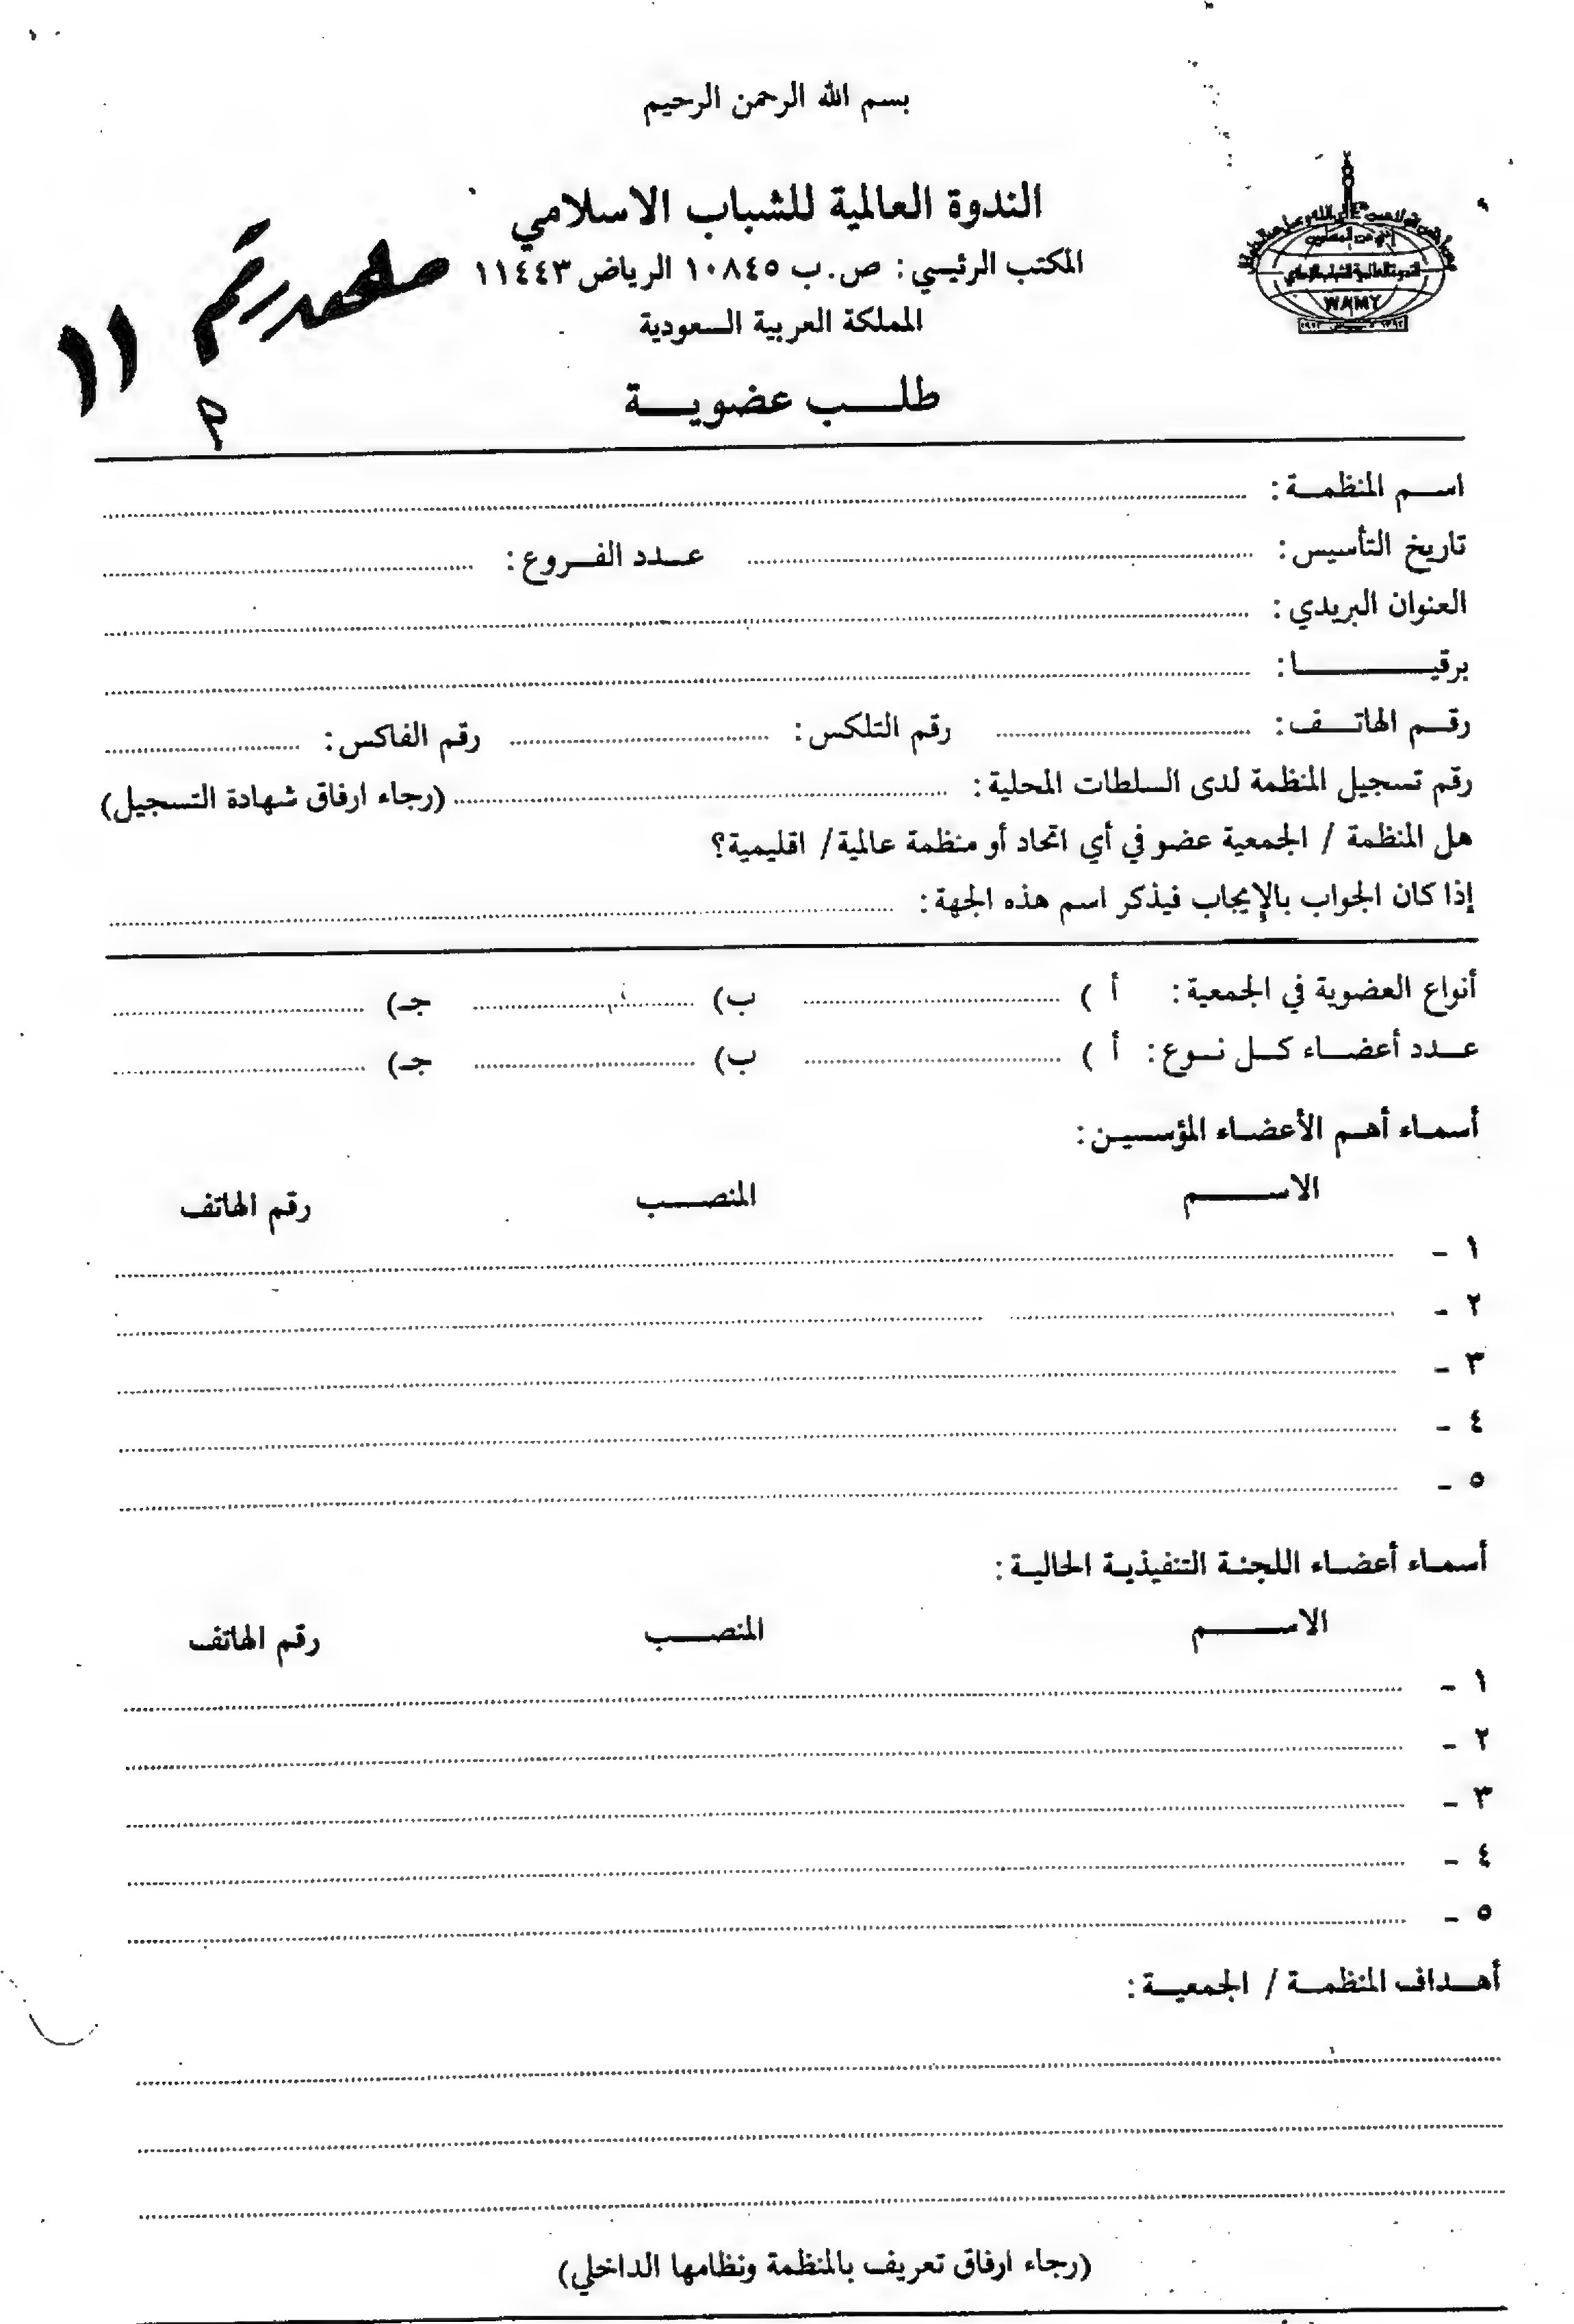 بسم الله الرحمن الرحيم
الندوة العالمية للشباب الاسلامي
المكتب الرئيسي: ص.ب ١٠٨٤٥ الرياض ١١٤٤٣
المملكة العربية السعودية
طلـــب عضويـــة
رقم ١١
WAMY
اســـم المنظمــة:
تاريخ التأسيس: عــدد الفــروع:
العنوان البريدي:
برقيـــــــا:
رقــم الهاتــف: رقم التلكس: رقم الفاكس:
رقم تسجيل المنظمة لدى السلطات المحلية: (رجاء ارفاق شهادة التسجيل)
هل المنظمة / الجمعية عضو في أي اتحاد أو منظمة عالمية/ اقليمية؟
إذا كان الجواب بالإيجاب فيذكر اسم هذه الجهة:
أنواع العضوية في الجمعية: أ ) ب) جـ)
عــدد أعضــاء كــل نــوع: أ ) ب) جـ)
أسمـاء أهـم الأعضـاء المؤسسيـن:
الاســــــم المنصــــب رقم الهاتف
١ -
٢ -
٣ -
٤ -
٥ -
أسمـاء أعضـاء اللجنـة التنفيذيـة الحاليـة:
الاســــــم المنصــــب رقم الهاتف
١ -
٢ -
٣ -
٤ -
٥ -
أهــداف المنظمــة / الجمعيــة:
(رجاء ارفاق تعريف بالمنظمة ونظامها الداخلي)